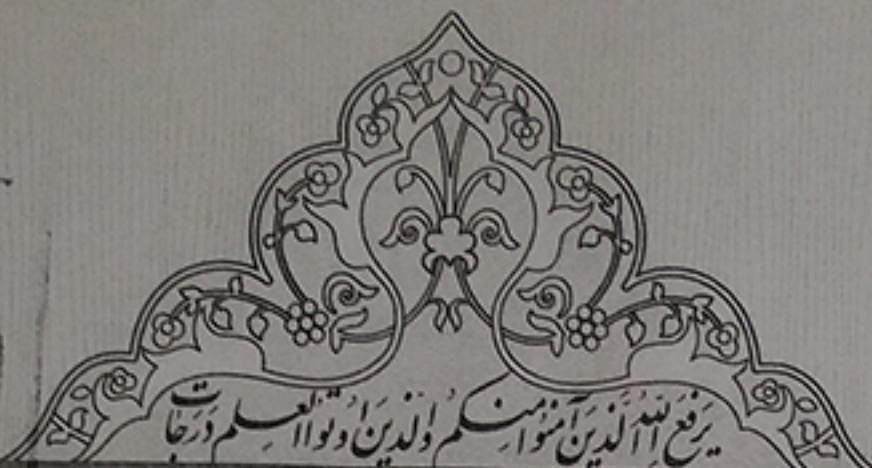 يَرفَعِ اللّهُ الَّذينَ آمَنُوا مِنكُم وَالَّذينَ اوتُوا العِلم دَرَجَات